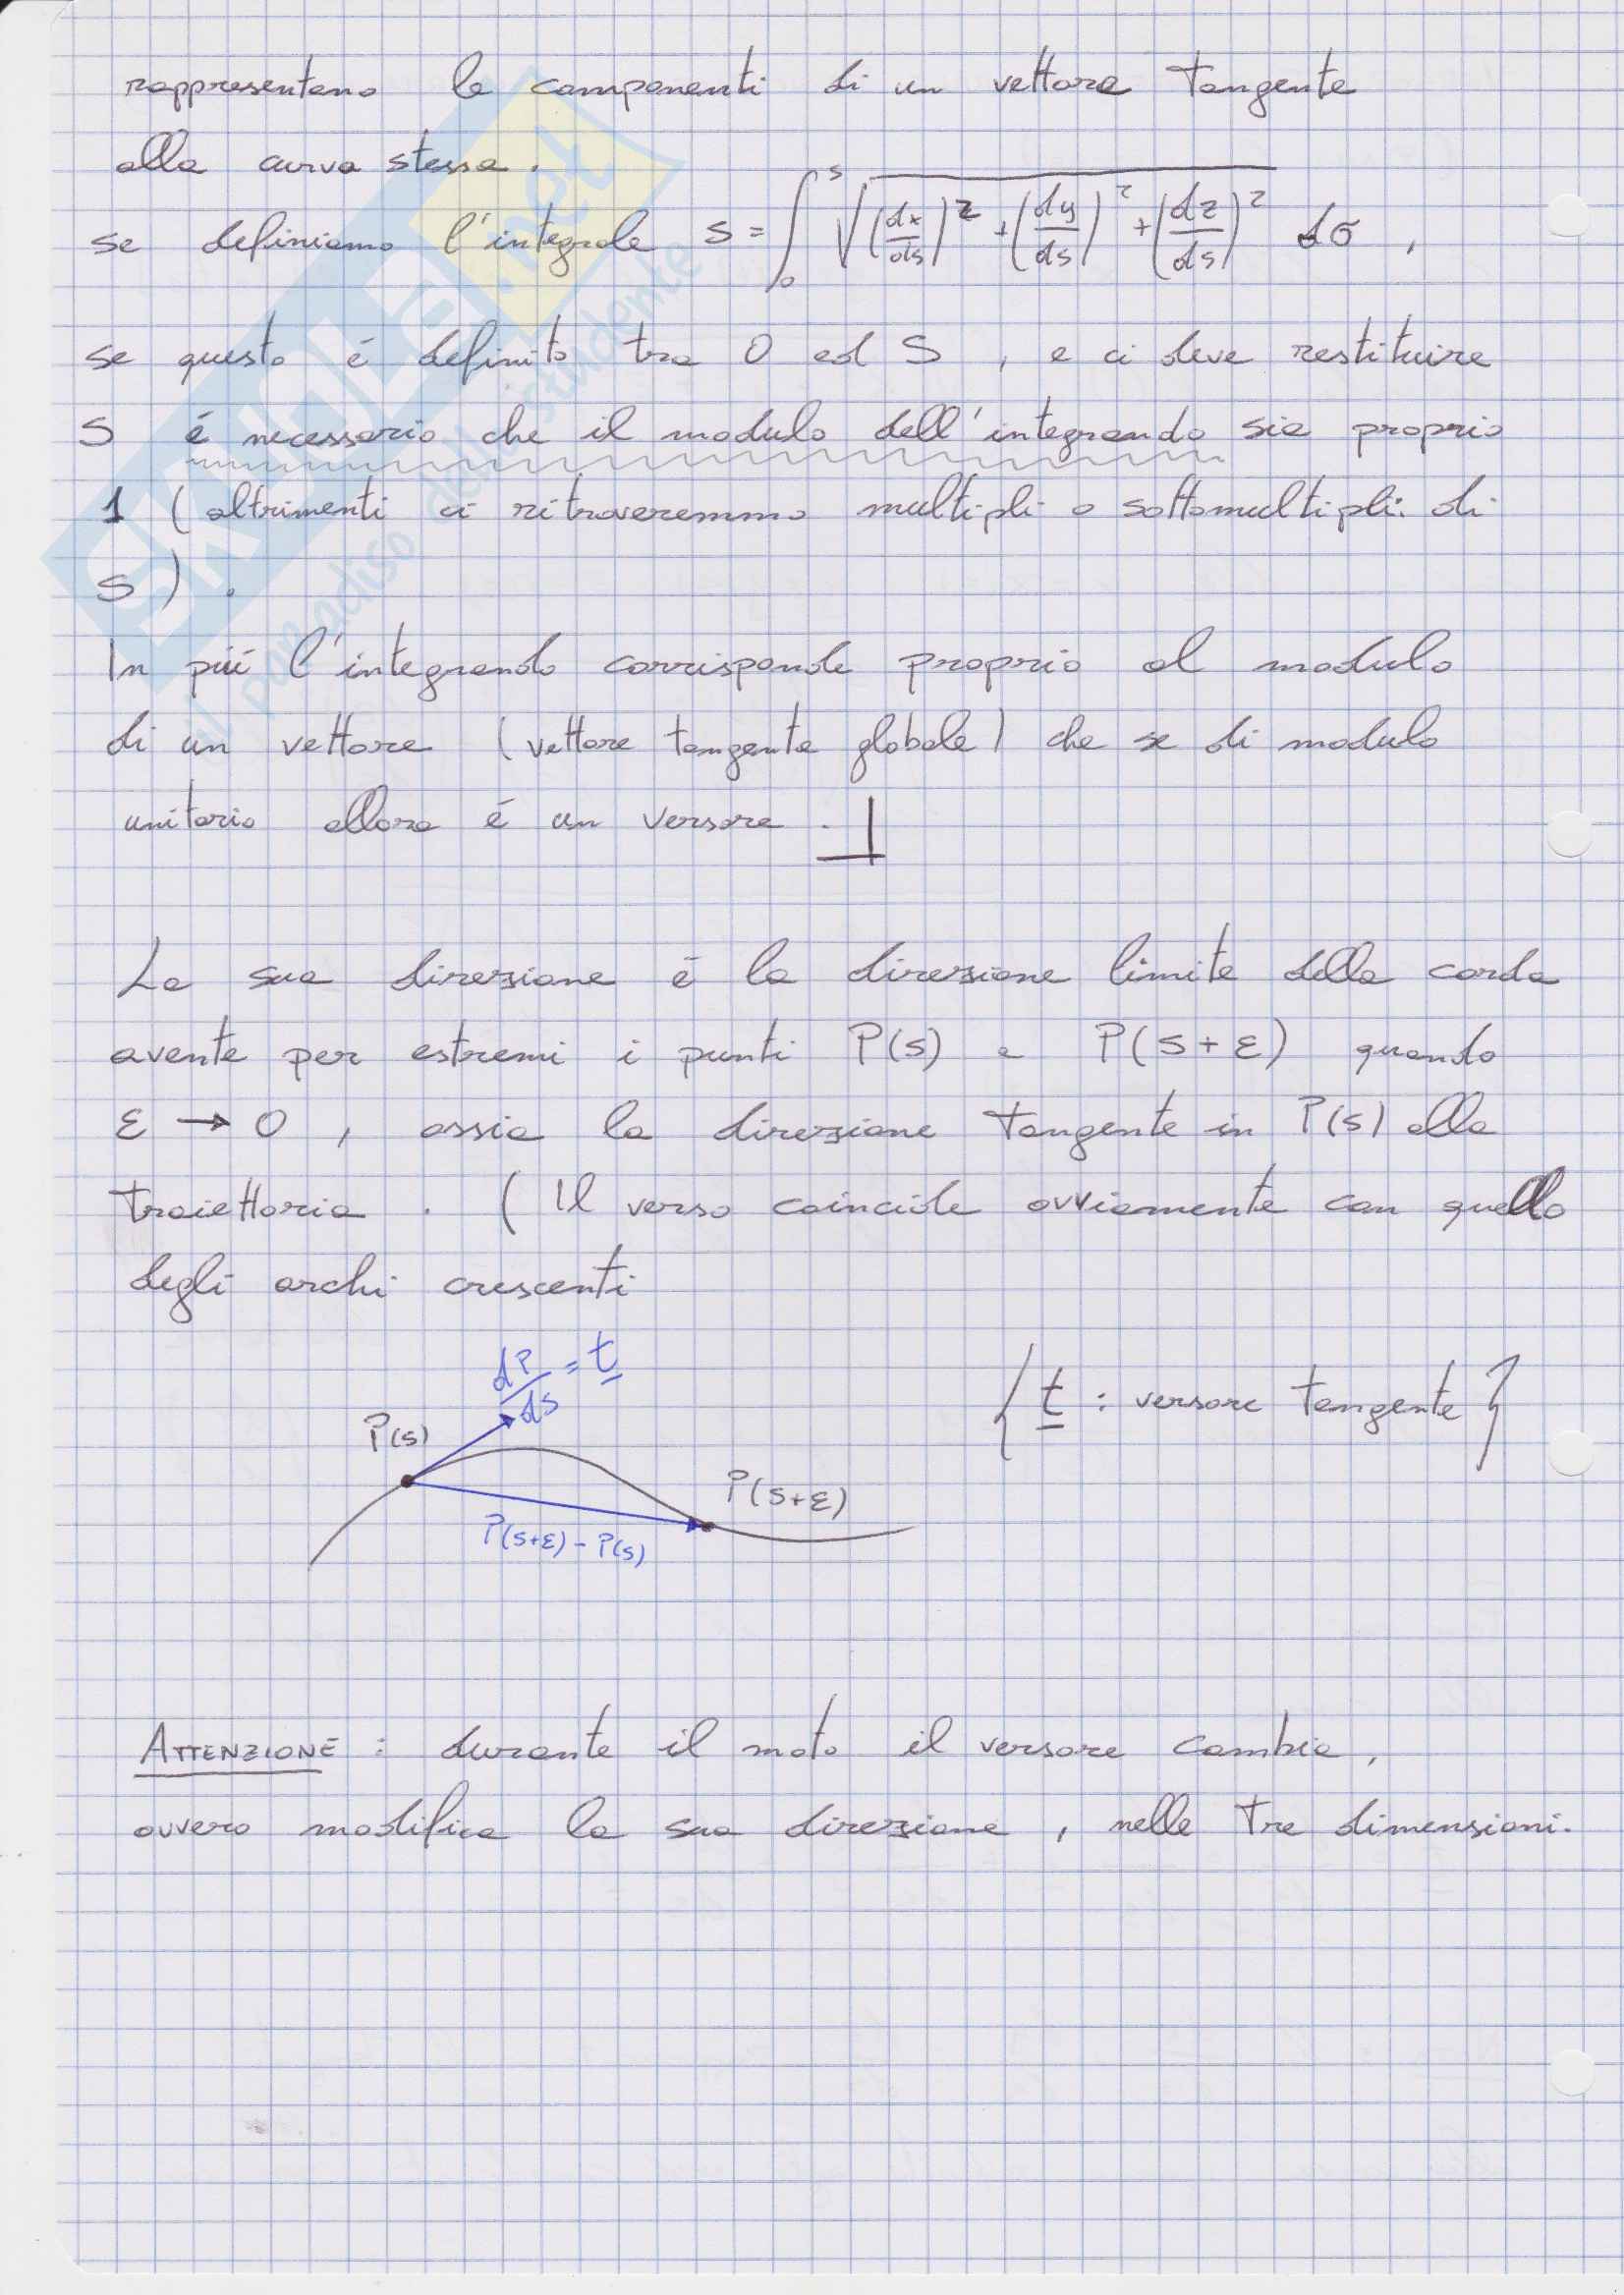 rappresentano le componenti di un vettore tangente
alla curva stessa.
se definiamo l'integrale s = ∫₀ˢ √((dx/ds)² + (dy/ds)² + (dz/ds)²) dσ ,
se questo é definito tra 0 ed S , e ci deve restituire
S é necessario che il modulo dell'integrando sia proprio
1 ( altrimenti ci ritroveremmo multipli o sottomultipli di
S ) .
In piú l'integrando corrisponde proprio al modulo
di un vettore ( vettore tangente globale ) che se di modulo
unitario allora é un versore .
La sua direzione é la direzione limite della corda
avente per estremi i punti P(s) e P(s+ε) quando
ε → 0 , ossia la direzione tangente in P(s) alla
traiettoria . ( Il verso coincide ovviamente con quello
degli archi crescenti
dP/ds = t
{ t : versore tangente }
P(s)
P(s+ε)
P(s+ε) - P(s)
ATTENZIONE : durante il moto il versore cambia ,
ovvero modifica la sua direzione , nelle tre dimensioni.
SKUOLA.net
il paradiso dello studente